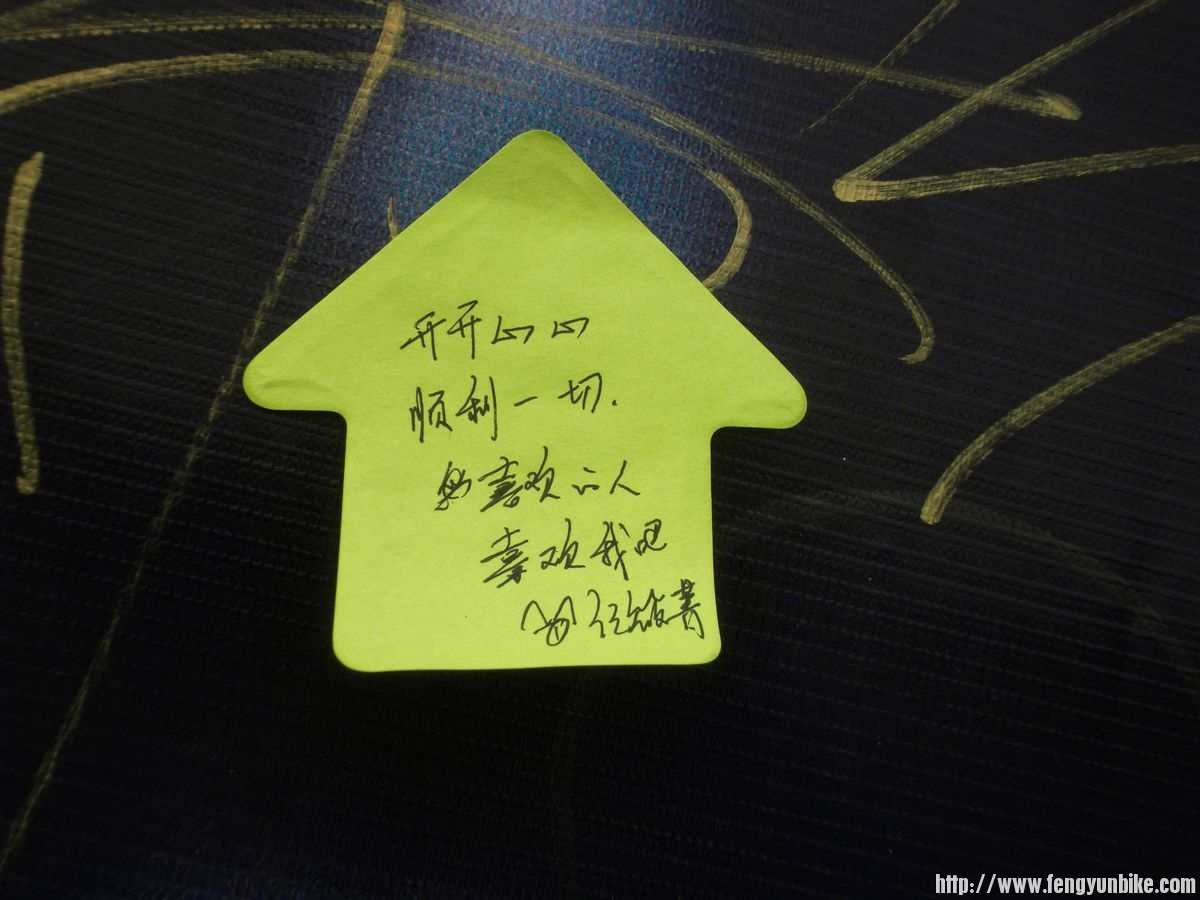 开开心心
顺利一切.
喜欢的人
喜欢我吧
http://www.fengyunbike.com